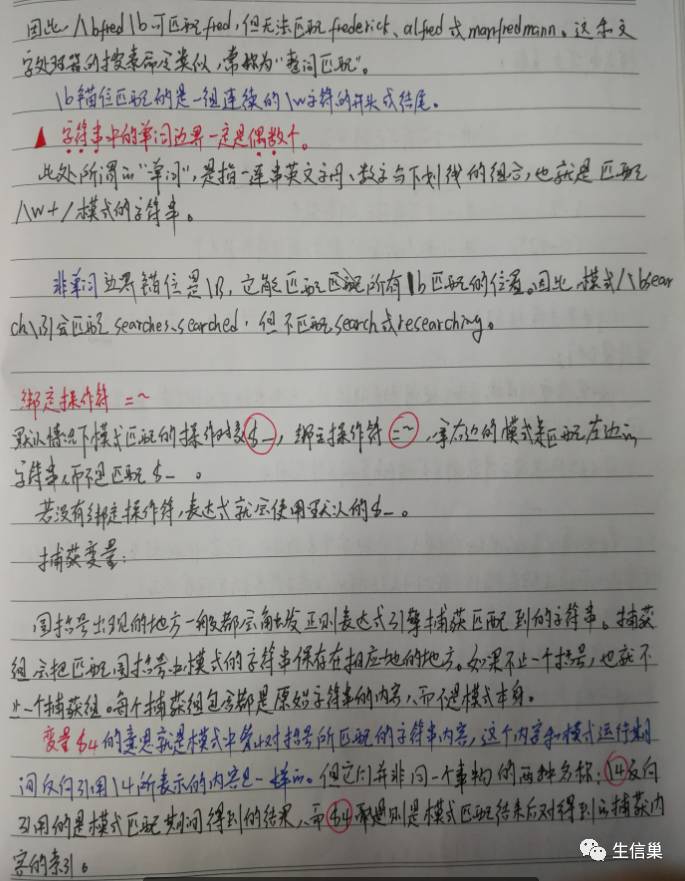 因此 /\bfred\b 可匹配fred,但无法匹配frederick、alfred 或manfredmann。这和文
字处理器的搜索命令类似,常称为"整词匹配"。
\b锚位匹配的是一组连续的\w字符的开头或结尾。
▲ 字符串中的单词边界一定是偶数个。
此处所谓的"单词",是指一连串英文字母、数字与下划线的组合,也就是匹配
/\w+/模式的字符串。
非单词边界锚位是\B,它能匹配匹配所有\b匹配的位置。因此,模式/\bsear
ch\B/会匹配searches、searched,但不匹配search或researching。
绑定操作符 =~
默认情况下模式匹配的操作对象$_,绑定操作符=~,拿右边的模式来匹配左边的
字符串,而不是匹配$_。
若没有绑定操作符,表达式就会使用默认的$_。
捕获变量:
圆括号出现的地方一般都会触发正则表达式引擎捕获匹配到的字符串。捕获
组会把匹配圆括号中模式的字符串保存在相应地的地方。如果不止一个括号,也就不
止一个捕获组。每个捕获组包含都是原始字符串的内容,而不是模式本身。
变量$4的意思就是模式中第4对括号所匹配的字符串内容,这个内容和模式运行期
间反向引用\4所表示的内容是一样的。但它们并非同一个事物的两种名称:\4反向
引用的是模式匹配期间得到的结果,而$4 则是模式匹配结束后对得到的捕获内
容的索引。
生信巢